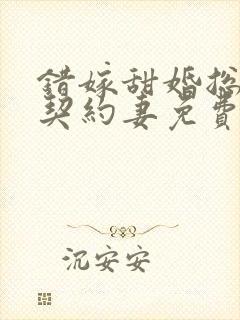 錯嫁甜婚
契約妻免費
沉安安